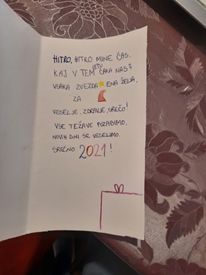 HITRO, HITRO MINE ČAS.
KAJ V TEM LETU ČAKA NAS?
VSAKA ZVEZDA ENA ŽELJA,
ZA
VESELJE, ZDRAVJE, SREČO!
VSE TEŽAVE POZABIMO,
NOVIH DNI SE VESELIMO.
SREČNO 2021!